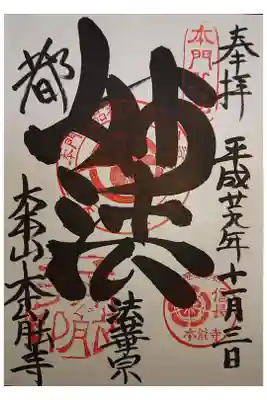 奉拝
平成廿九年十一月三日
本門
妙法
法華宗
信長
本能寺
都
大本山本能寺